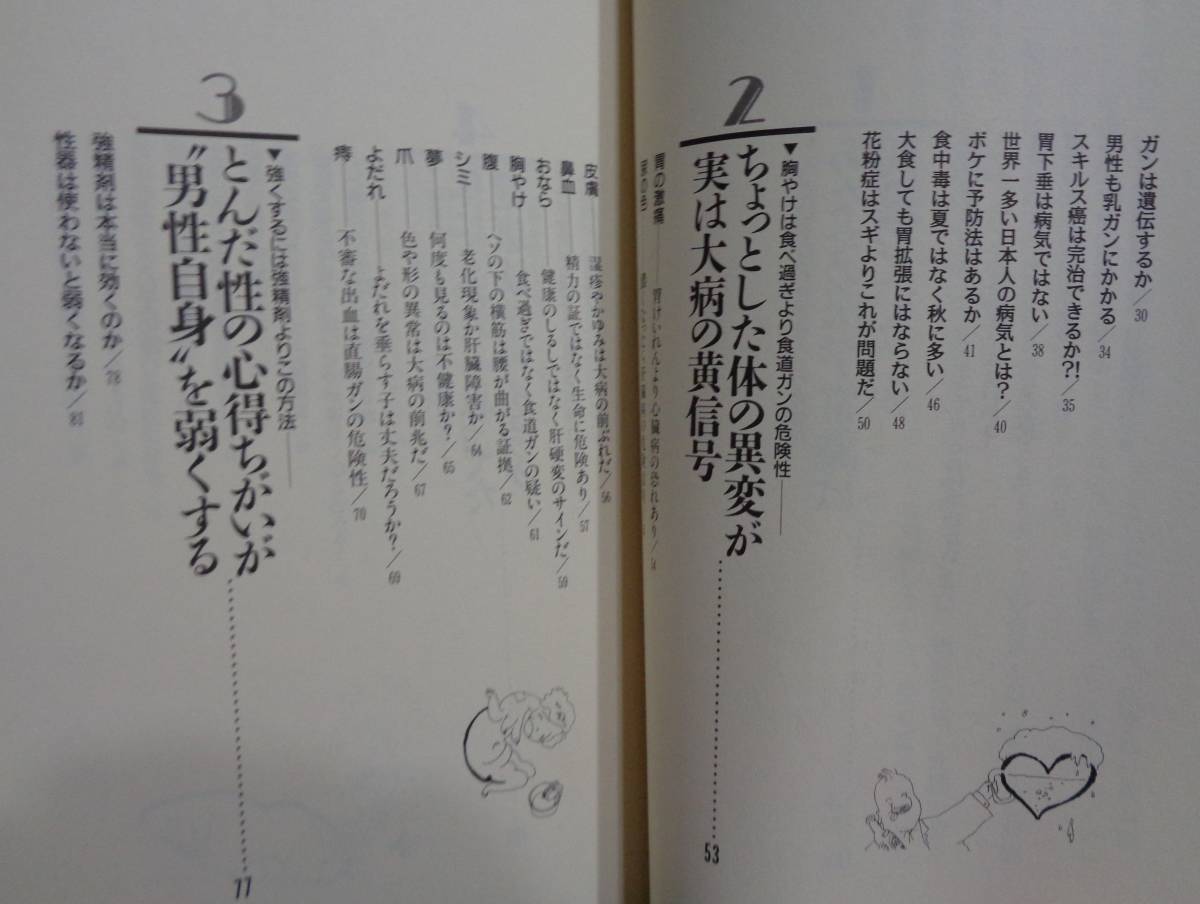 ガンは遺伝するか／30
男性も乳ガンにかかる／34
スキルス癌は完治できるか?!／35
胃下垂は病気ではない／38
世界一多い日本人の病気とは?／40
ボケに予防法はあるか／41
食中毒は夏ではなく秋に多い／46
大食しても胃拡張にはならない／48
花粉症はスギよりこれが問題だ／50
2
▼胸やけは食べ過ぎより食道ガンの危険性――
ちょっとした体の異変が
実は大病の黄信号……………53
胃の激痛――胃けいれんより心臓病の恐れあり／54
皮膚――湿疹やかゆみは大病の前ぶれだ／56
鼻血――精力の証ではなく生命に危険あり／57
おなら――健康のしるしではなく肝硬変のサインだ／59
胸やけ――食べ過ぎではなく食道ガンの疑い／61
腹――ヘソの下の横筋は腰が曲がる証拠／62
シミ――老化現象か肝臓障害か／64
夢――何度も見るのは不健康か?／65
爪――色や形の異常は大病の前兆だ／67
よだれ――よだれを垂らす子は丈夫だろうか?／69
痔――不審な出血は直腸ガンの危険性／70
3
▼強くするには強精剤よりこの方法――
とんだ性の心得ちがいが
〝男性自身〟を弱くする……………77
強精剤は本当に効くのか／78
性器は使わないと弱くなるか／81